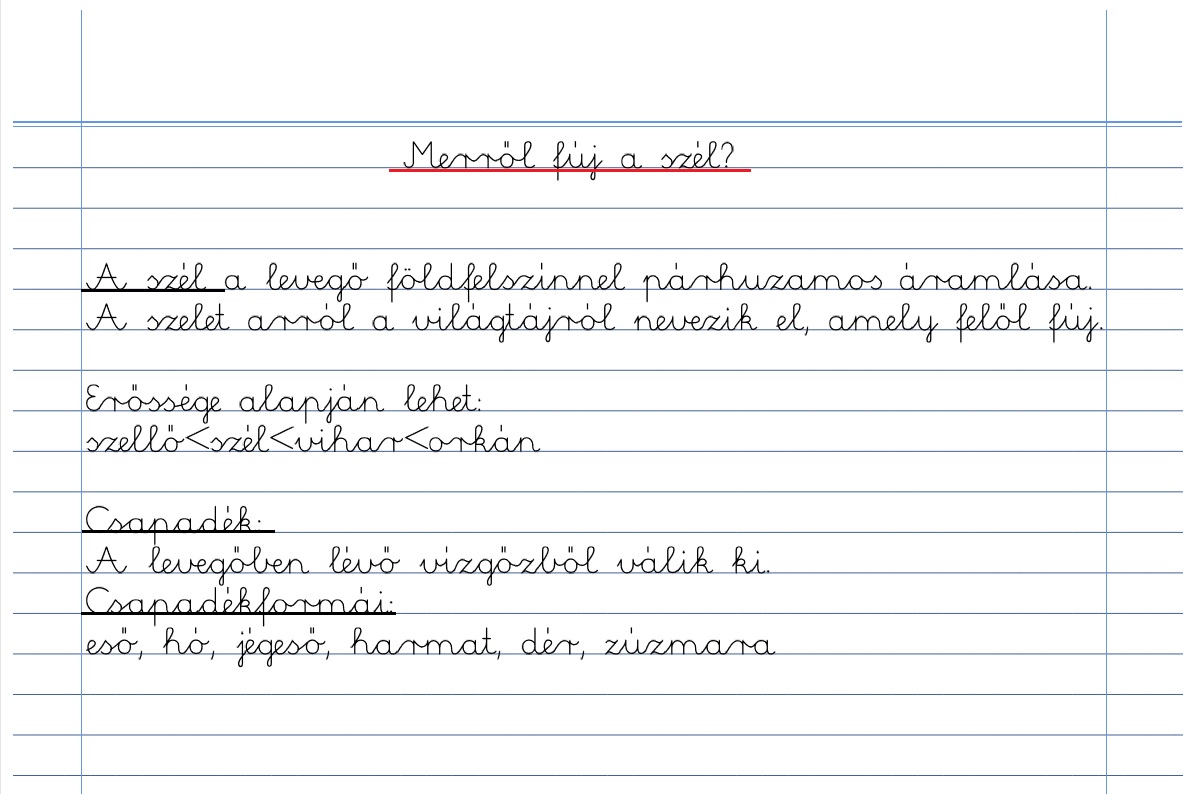 Merről fúj a szél?
A szél a levegő földfelszínnel párhuzamos áramlása.
A szelet arról a világtájról nevezik el, amely felől fúj.
Erőssége alapján lehet:
szellő<szél<vihar<orkán
Csapadék:
A levegőben lévő vízgőzből válik ki.
Csapadékformái:
eső, hó, jégeső, harmat, dér, zúzmara